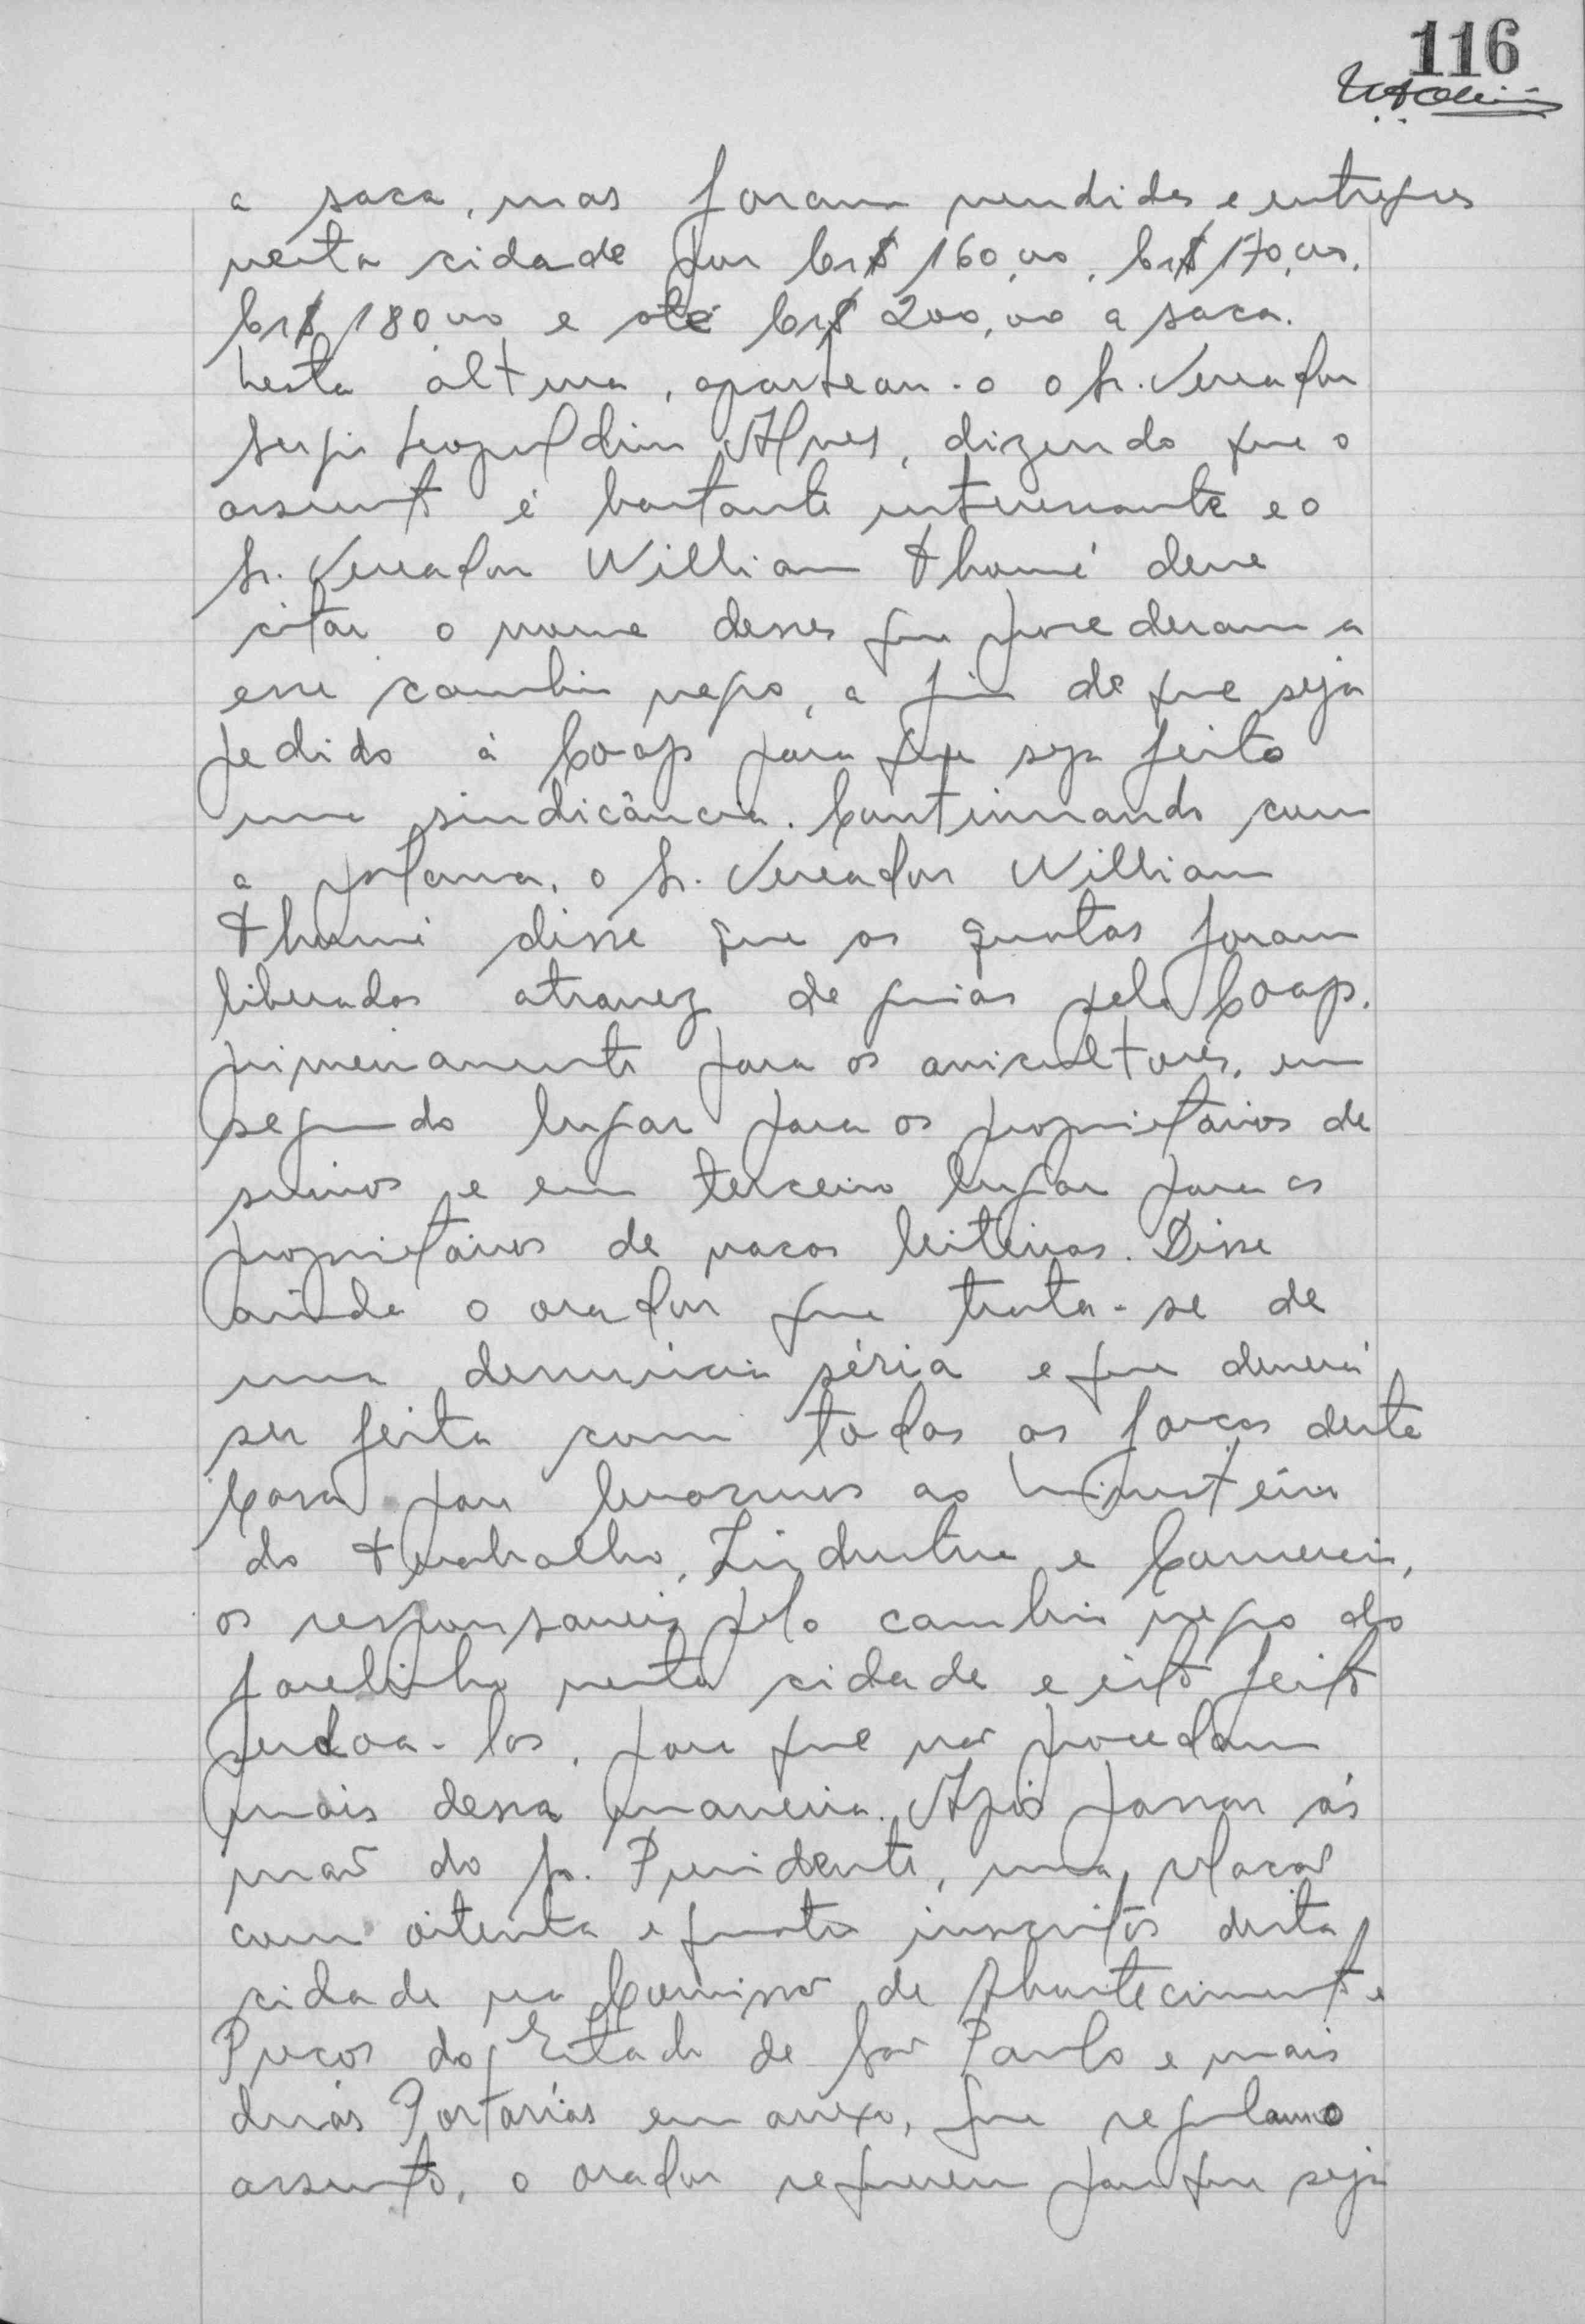 116
a saca, mas foram vendidos e entregues
nesta cidade por Cr$ 160,00, Cr$ 170,00,
Cr$ 180,00 e até Cr$ 200,00 a saca.
Nesta altura, aparteau-o o Sr. Vereador
Sergio Leopoldino Alves, dizendo que o
assunto é bastante interessante e o
Sr. Vereador William Thomé deve
citar o nome desses que procederam a
esse cambio negro, a fim de que seja
pedido á Coap para que seja feito
uma sindicância. Continuando com
a palavra, o Sr. Vereador William
Thomé disse que as quotas foram
liberadas atravez de guias pela Coap,
primeiramente para os avicultores, em
segundo lugar para os proprietários de
suinos e em terceiro lugar para os
proprietários de vacas leiteiras. Disse
ainda o orador que trata-se de
uma denúncia séria e que deverá
ser feita com todas as forças desta
Casa para levarmos ao Ministério
do Trabalho, Industria e Comercio,
os responsaveis pelo cambio negro do
farelinho nesta cidade e isto feito
perdoa-los, para que não procedam
mais dessa maneira. Após passar ás
mãos do Sr. Presidente, uma relação
com oitenta e quatro inscritos desta
cidade na Comissão de Abastecimento e
Preços do Estado de São Paulo e mais
duas Portarias em anexo, que regulam o
assunto, o orador requereu para que seja